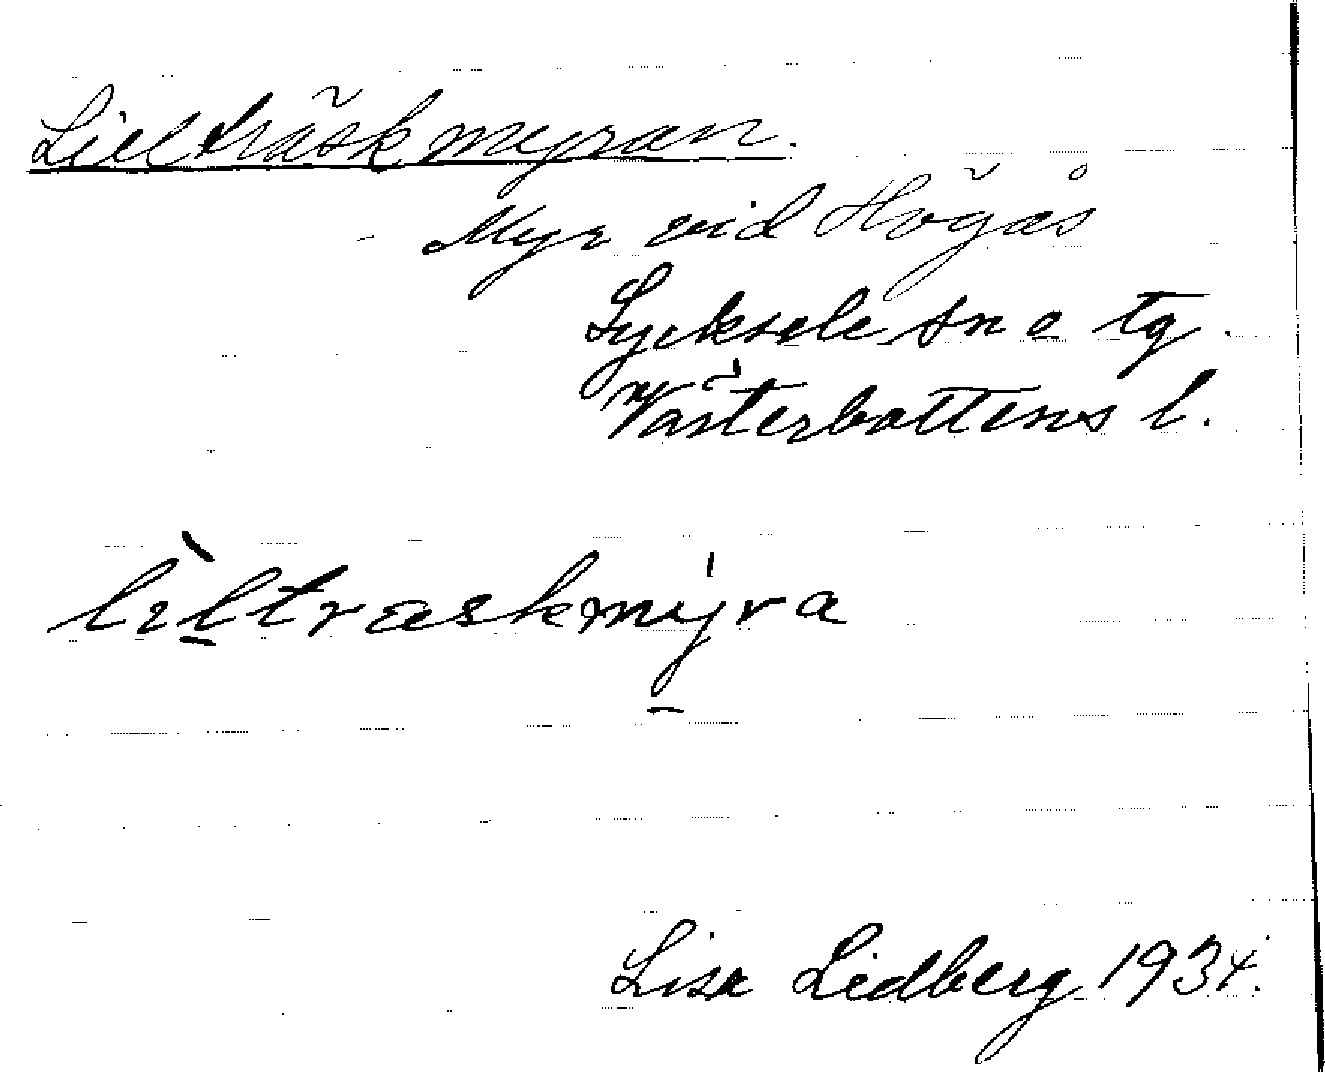 Lillträskmyran.
Myr vid Högås
Lycksele sn o tg.
Västerbottens l.
lìltraskmyra
Lisa Lidberg 1934.